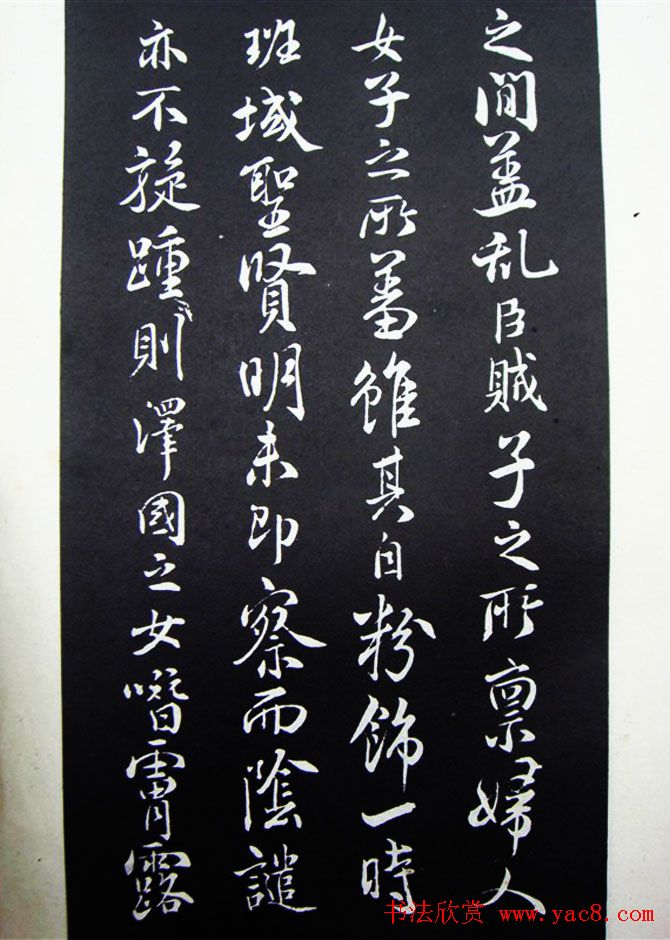 之間盖乱臣賊子之所禀婦人
女子之所蓄雖其自粉飾一時
班域聖賢明未即察而陰譴
亦不旋踵則澤國之女噆膚露
书法欣赏 www.yac8.com